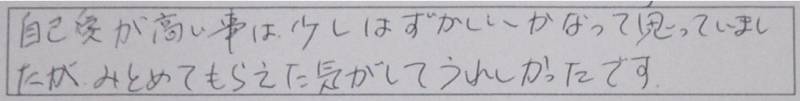 自己愛が高い事は、少しはずかしいかなって思っていまし
たが、みとめてもらえた気がしてうれしかったです。